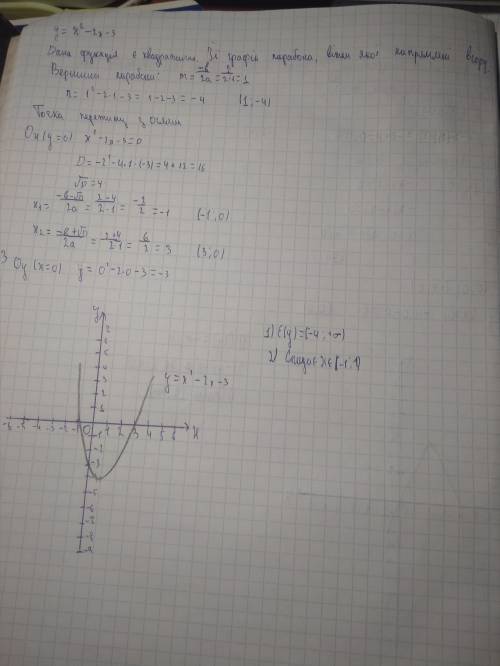 y = x² - 2x - 3
Дана функція є квадратична. Її графік парабола, вітки якої напрямлені вгору.
Вершини параболи: m = -b/2a = 2/2·1 = 1
n = 1² - 2·1 - 3 = 1 - 2 - 3 = -4 (1; -4)
Точка перетину з осями
Ox (y=0) x² - 2x - 3 = 0
D = -2² - 4·1·(-3) = 4 + 12 = 16
√D = 4
x₁ = -b-√D/2a = 2-4/2·1 = -2/2 = -1 (-1; 0)
x₂ = -b+√D/2a = 2+4/2·1 = 6/2 = 3 (3; 0)
З Oy (x=0) y = 0² - 2·0 - 3 = -3
y
1) E(y) = [-4; +∞)
2) Спадає x∈
y = x² - 2x - 3
-6 -5 -4 -3 -2 -1 0 1 2 3 4 5 6 x